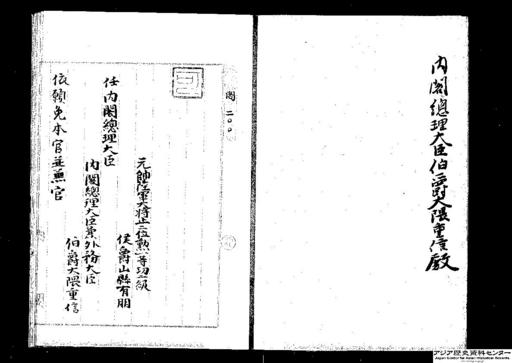 内閣總理大臣伯爵大隈重信殿
閣二〇〇
元帥陸軍大將正二位勲一等功二級
侯爵山縣有朋
任内閣總理大臣
内閣總理大臣兼外務大臣
伯爵大隈重信
依願免本官並兼官
アジア歴史資料センター
Japan Center for Asian Historical Records